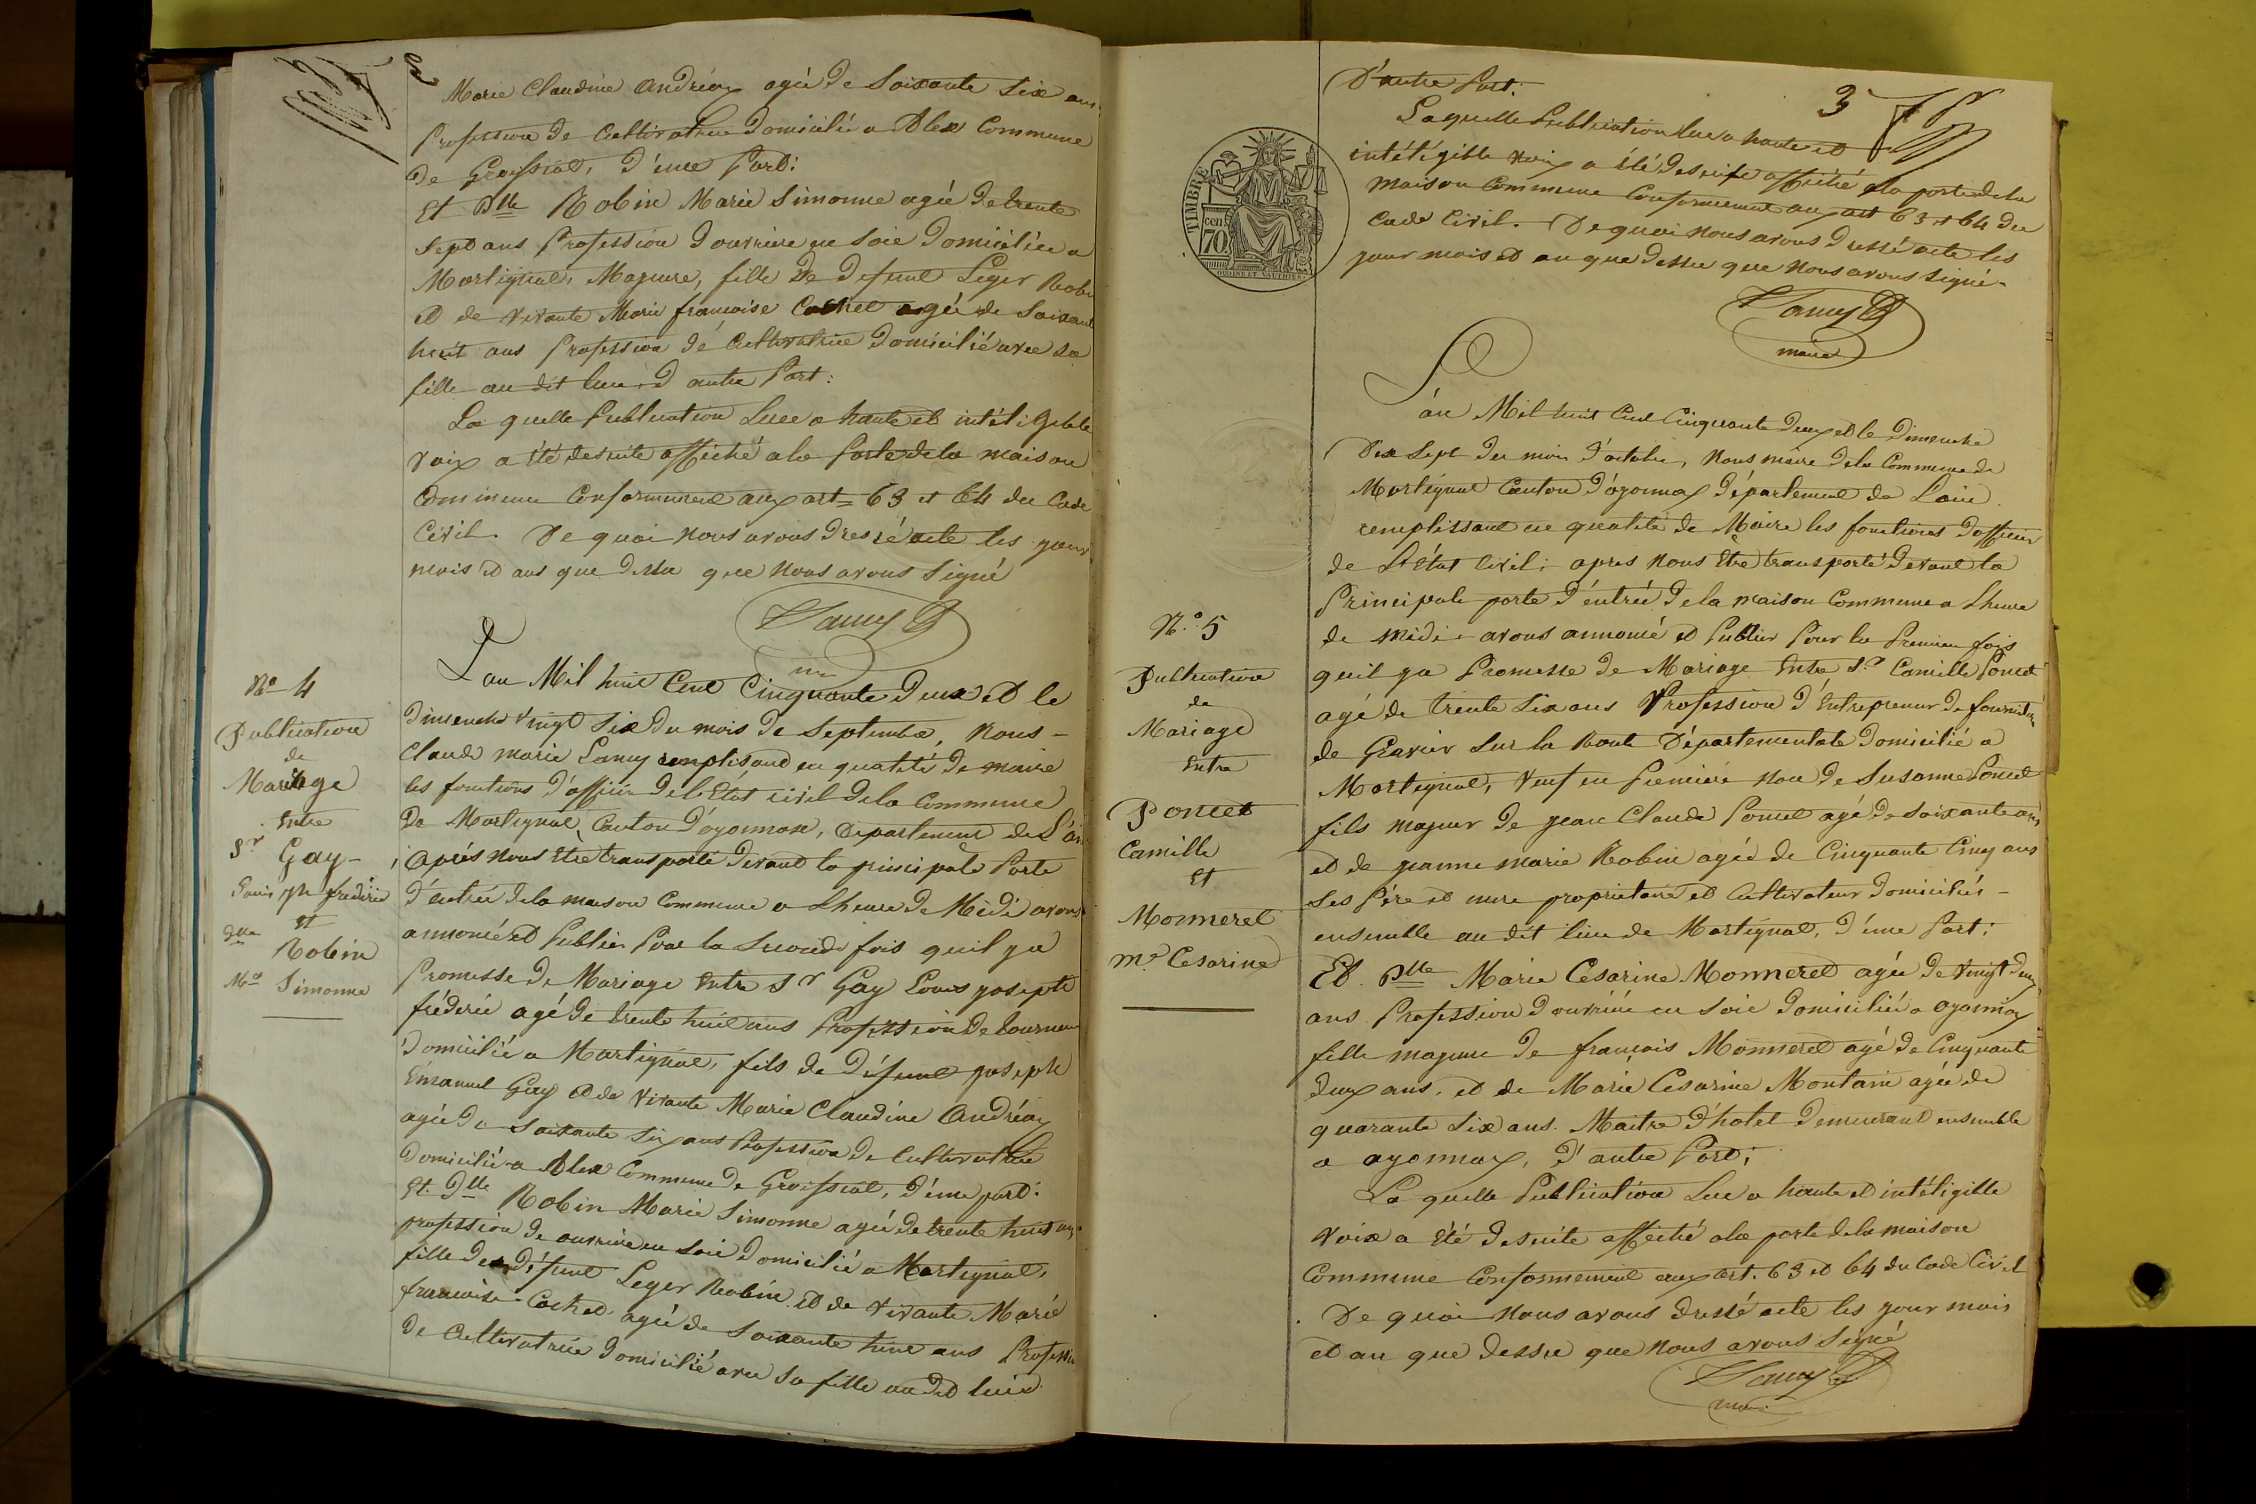 Marie Claudine Andréax agée de Soixante Six ans
Profession de Cultivatrice Domiciliée a Alex Commune
de Groissiat, d'une Part:
Et Dlle Robin Marie Simonne agée de trente
Sept ans Profession d'ouvriere en Soie Domiciliée a
Martignat, Majeure, fille de defunt Leger Robin
et de vivante Marie francoise Cochet agée de Soixante
huit ans Profession de Cultivatrice Domicilié avec sa
fille au dit lieu, d'autre Part:
La quelle Publication Luee a haute et intéligible
Voix a été desuite affiché a la Porte de la maison
Commune Conformement aux art= 63 et 64 du Code
Civil. De quoi nous avons dressé acte les jour
mois et ans que dessu que nous avons Signé
Lamy
N° 4
Publication
de
Mariage
Entre
Sr Gay
Louis jph frederic
et
Dlle
Robin
Mie Simonne
L'an Mil huit Cent Cinquante deux et le
dimenche vingt Six du mois de Septembre, nous
Claude marie Lamy remplisant en qualité de maire
les fonctions d'officier de l'Etat civil de la Commune
De Martignat, Canton d'oyonnax, Departement de L'ain
Après nous Etre transporté devant la principale Porte
d'entrée de la maison Commune a L'heure de Midi avons
annoncé et Publier Pour la Seconde fois quil ya
Promesse de Mariage Entre Sr Gay Louis josepte
fréderic agé de trente huit ans Profession De tourneur
Domicilié a Martignat, fils de Défunt joseph
Emanuel Gay et de vivante Marie Claudine Andréax
agée de soixante Six ans Profession de Cultivatrice
Domicilié a Alex Commune de Groissiat, d'une part:
Et Dlle Robin Marie Simonne agée de trente huit ans
profession de ouvriere en Soie Domicilié a Martignat,
fille de défunt Leger Robin et de vivante Marie
francoise Cochet agée de Soixante huit ans Profession
de Cultivatrice Domicilié avec Sa fille au dit lieu
3
D'autre Part:
Laquelle Publication lue a haute et
intéligible voix a été desuite affiché a la porte de la
maison Commune Conformement aux art 63 et 64 du
Code Civil. De quoi nous avons dressé acte les
jour mois et an que dessu que nous avons signé.
Lamy
maire
TIMBRE
CEN
70
N° 5
Publication
de
Mariage
Entre
Poncet
Camille
Et
Monneret
me Cesarine
L'an Mil huit Cent Cinquante deux et le Dimenche
Dix Sept du mois d'octobre, nous maire de la Commune de
Martignat Canton d'oyonnax Département de L'ain
remplissant en qualité de Maire les fonctions d'officier
de L'État Civil; apres nous Etre transporté devant la
Principale porte d'entrée de la maison Commune a L'heure
de Midi avons annoncé et Publier Pour la Premiere fois
quil ya Promesse de Mariage Entre Sr Camille Poncet
agé de trente Six ans Profession d'Entrepreneur de fourniture
de Gravier Sur la Route Départementale Domicilié a
Martignat, Veuf en Premiere noce de Susanne Poncet
fils majeur de jean Claude Poncet agé de Soixante ans
et de jeanne marie Robin agée de Cinquante Cinq ans
ses Pére et mere proprietaire et Cultivateur Domiciliés
ensemble au dit lieu de Martignat, d'une Part;
Et Dlle Marie Cesarine Monneret agée de vingt deux
ans Profession d'ouvriere en Soie Domicilié a oyonnax
fille majeure de francois Monneret agé de Cinquante
deux ans, et de Marie Cesarine Montain agée de
quarante Six ans. Maitre d'hotel Demeurant ensemble
a oyonnax, d'autre Part;
La quelle Publication Lue a haute et intéligible
Voix a été desuite affiché a la porte de la maison
Commune Conformement aux art. 63 et 64 du Code Civil
De quoi nous avons dressé acte les jour mois
et an que dessu que nous avons Signé
Lamy